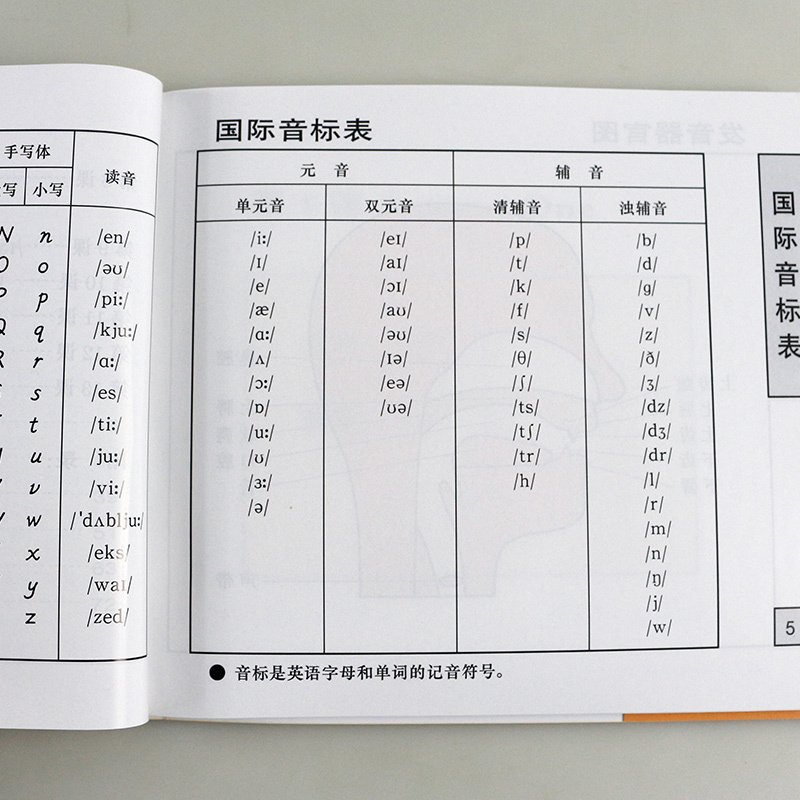 手写体
写 小写 读音
N n /en/
O o /əʊ/
P p /piː/
Q q /kjuː/
R r /ɑː/
s /es/
t /tiː/
u /juː/
v /viː/
w /ˈdʌbljuː/
x /eks/
y /waɪ/
z /zed/
国际音标表
元 音 辅 音
单元音 双元音 清辅音 浊辅音
/iː/ /eɪ/ /p/ /b/
/ɪ/ /aɪ/ /t/ /d/
/e/ /ɔɪ/ /k/ /ɡ/
/æ/ /aʊ/ /f/ /v/
/ɑː/ /əʊ/ /s/ /z/
/ʌ/ /ɪə/ /θ/ /ð/
/ɔː/ /eə/ /ʃ/ /ʒ/
/ɒ/ /ʊə/ /ts/ /dz/
/uː/ /tʃ/ /dʒ/
/ʊ/ /tr/ /dr/
/ɜː/ /h/ /l/
/ə/ /r/
/m/
/n/
/ŋ/
/j/
/w/
● 音标是英语字母和单词的记音符号。
国际音标表
5